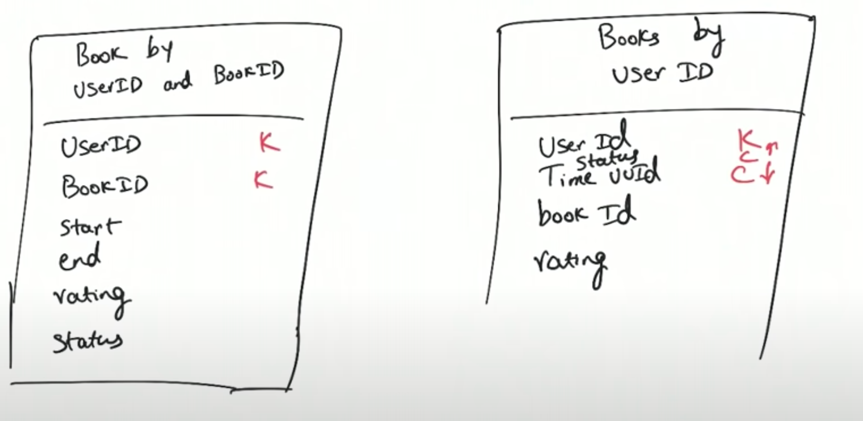 Book by
UserID and BookID
UserID K
BookID K
start
end
rating
status
Books by
User ID
User Id K
status C↑
Time UUId C↓
book Id
rating